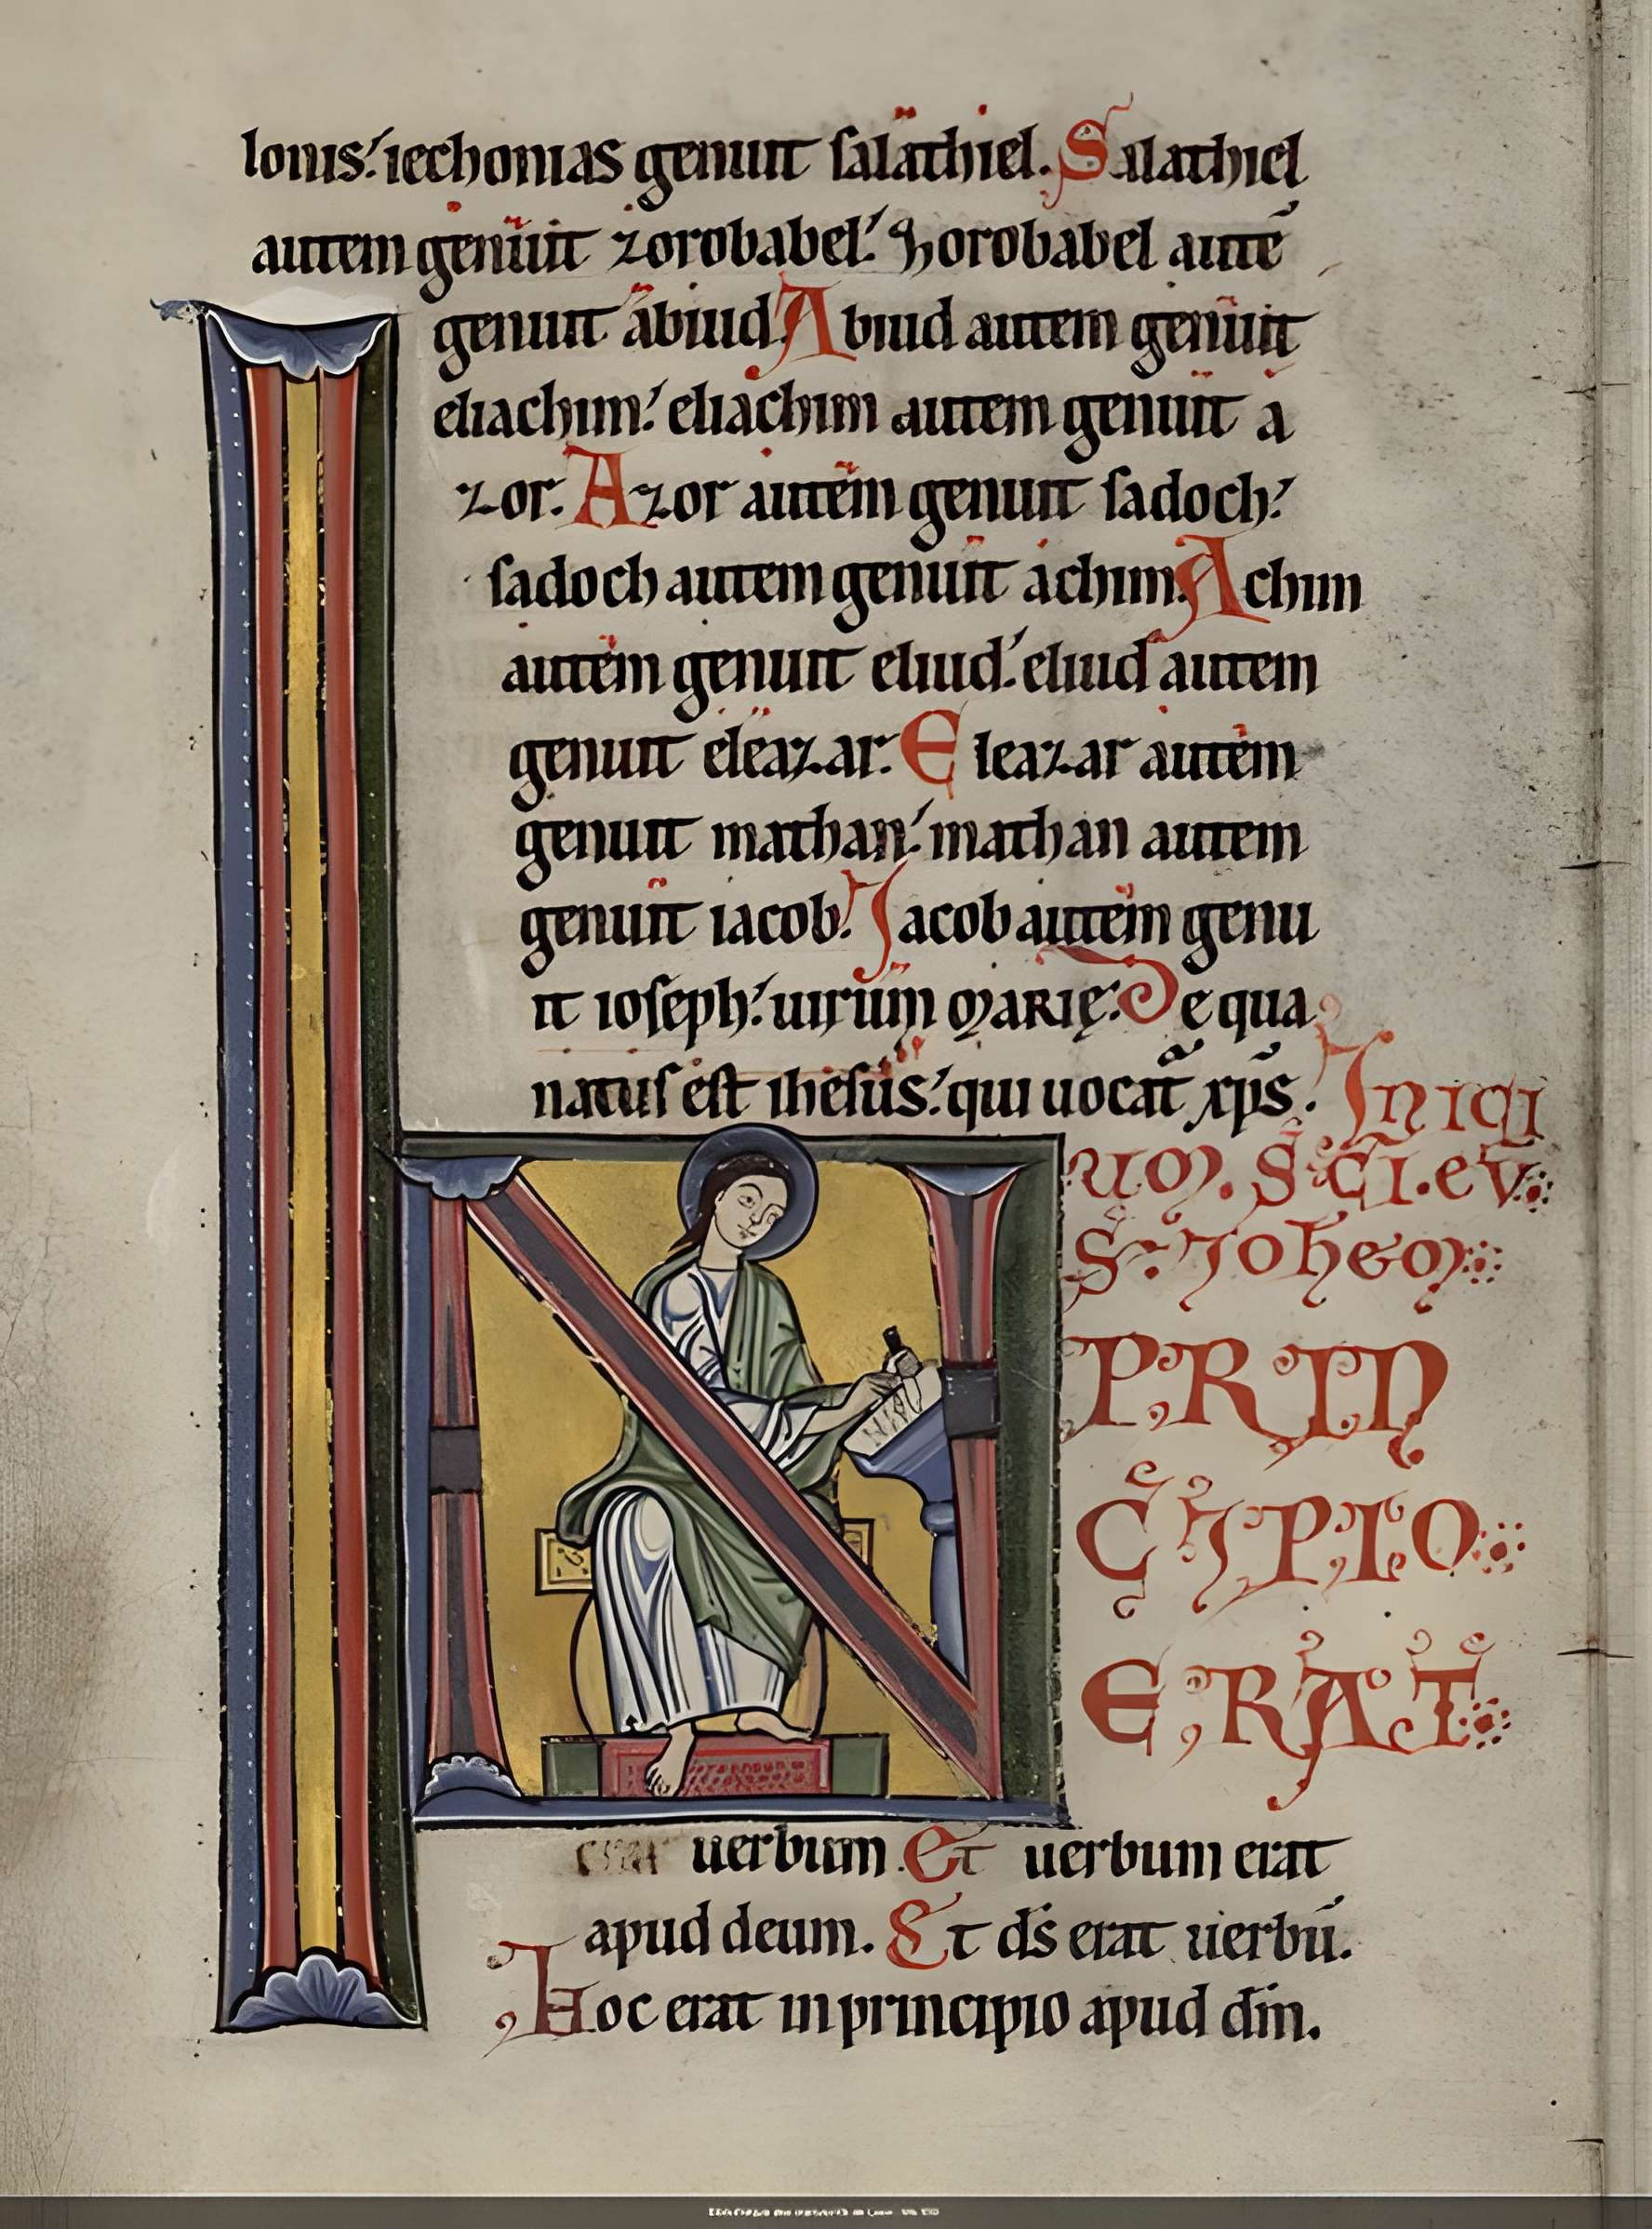 lonis: iechonias genuit salathiel. Salathiel
autem genuit zorobabel: Zorobabel autē
genuit abiud. Abiud autem genuit
eliachim: eliachim autem genuit a
zor. Azor autem genuit sadoch:
sadoch autem genuit achim. Achim
autem genuit eliud: eliud autem
genuit eleazar. Eleazar autem
genuit mathan: mathan autem
genuit iacob. Jacob autem genu
it ioseph: uirum MARIĘ: De qua
natus est ihesus: qui uocat̄ xp̄s. INICI
UM. S̄C̄I. EV
S JOHEM
IN
PRIN
CIPIO
ERAT
erat uerbum. Et uerbum erat
apud deum. Et d̄s erat uerbū.
Hoc erat in principio apud dm̄.